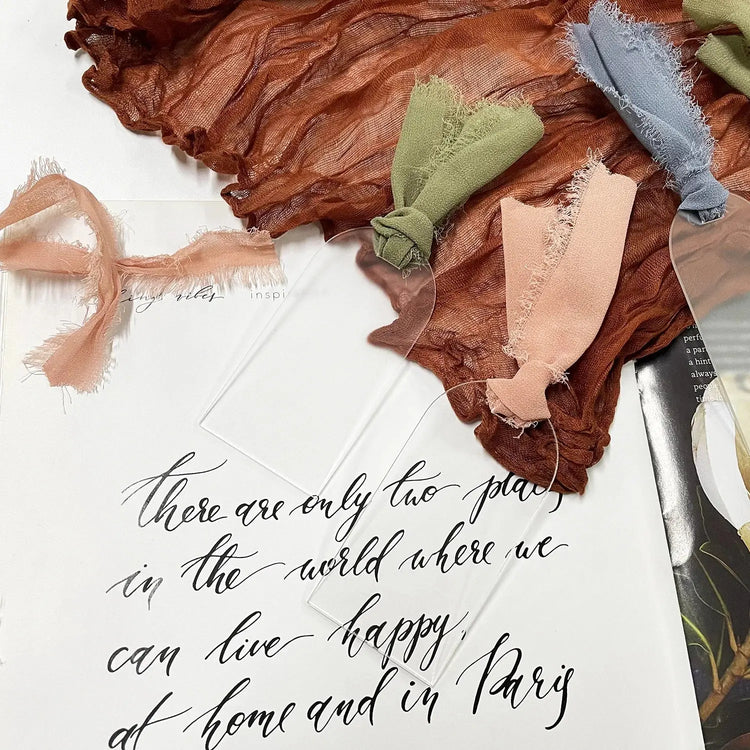 vibes inspi
there are only two places
in the world where we
can live happy,
at home and in Paris
perf
a par
a hint
always
people